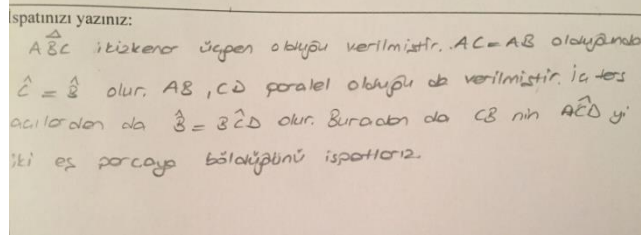 İspatınızı yazınız:
ABC ikizkenar üçgen olduğu verilmiştir. AC = AB olduğunda
Ĉ = B̂ olur. AB, CD paralel olduğu da verilmiştir. İç ters
açılardan da B̂ = BĈD olur. Buradan da CB nin AĈD yi
iki eş parçaya böldüğünü ispatlarız.